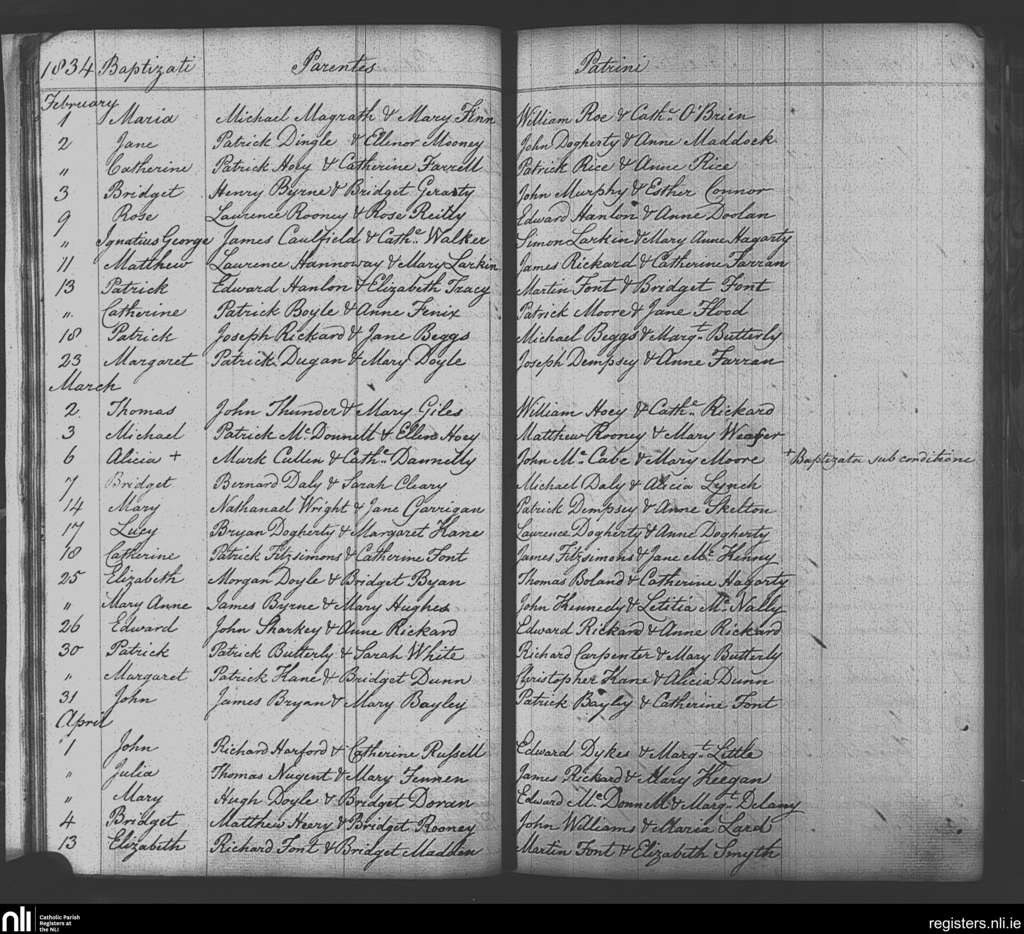 1834 Baptizati Parentes Patrini
February
1 Maria Michael Magrath & Mary Finn William Roe & Cath.e O'Brien
2 Jane Patrick Dingle & Ellenor Mooney John Dogherty & Anne Maddock
" Catherine Patrick Hoey & Catherine Farrell Patrick Rice & Anne Rice
3 Bridget Henry Byrne & Bridget Gerasty John Murphy & Esther Connor
9 Rose Laurence Rooney & Rose Reilly Edward Hanlon & Anne Doolan
" Ignatius George James Caulfield & Cath.e Walker Simon Larkin & Mary Anne Hagarty
11 Matthew Laurence Hannoway & Mary Larkin James Rickard & Catherine Farran
13 Patrick Edward Hanlon & Elizabeth Tracy Martin Font & Bridget Font
" Catherine Patrick Boyle & Anne Fenix Patrick Moore & Jane Flood
18 Patrick Joseph Rickard & Jane Beggs Michael Beggs & Marg.t Butterly
23 Margaret Patrick Dugan & Mary Doyle Joseph Dempsey & Anne Farran
March
2 Thomas John Thunder & Mary Giles William Hoey & Cath.e Rickard
3 Michael Patrick Mc.Donnell & Ellen Hoey Matthew Rooney & Mary
6 Alicia + Mark Cullen & Cath.e Dannelly John Mc.Cabe & Mary Moore + Baptizata sub conditione
7 Bridget Bernard Daly & Sarah Cleary Michael Daly & Alicia Lynch
14 Mary Nathanael Wright & Jane Garrigan Patrick Dempsey & Anne Skelton
17 Lucy Bryan Dogherty & Margaret Kane Laurence Dogherty & Anne Dogherty
18 Catherine Patrick Fitzsimons & Catherine Font James Fitzsimons & Jane Mc.Kenny
25 Elizabeth Morgan Doyle & Bridget Byan Thomas Boland & Catherine Hagarty
" Mary Anne James Byrne & Mary Hughes John Kennedy & Letitia Mc.Nally
26 Edward John Sharkey & Anne Rickard Edward Rickard & Anne Rickard
30 Patrick Patrick Butterly & Sarah White Richard Carpenter & Mary Butterly
" Margaret Patrick Kane & Bridget Dunn Christopher Kane & Alicia Dunn
31 John James Bryan & Mary Bayley Patrick Bayley & Catherine Font
April
1 John Richard Harford & Catherine Russell Edward Dykes & Marg.t Little
" Julia Thomas Nugent & Mary Fennen James Rickard & Mary Keegan
" Mary Hugh Doyle & Bridget Doran Edward Mc.Donnell & Marg.t Delamy
4 Bridget Matthew Heery & Bridget Rooney John Williams & Maria Lard
13 Elizabeth Richard Font & Bridget Madden Martin Font & Elizabeth Smyth
nli Catholic Parish Registers at the NLI
registers.nli.ie